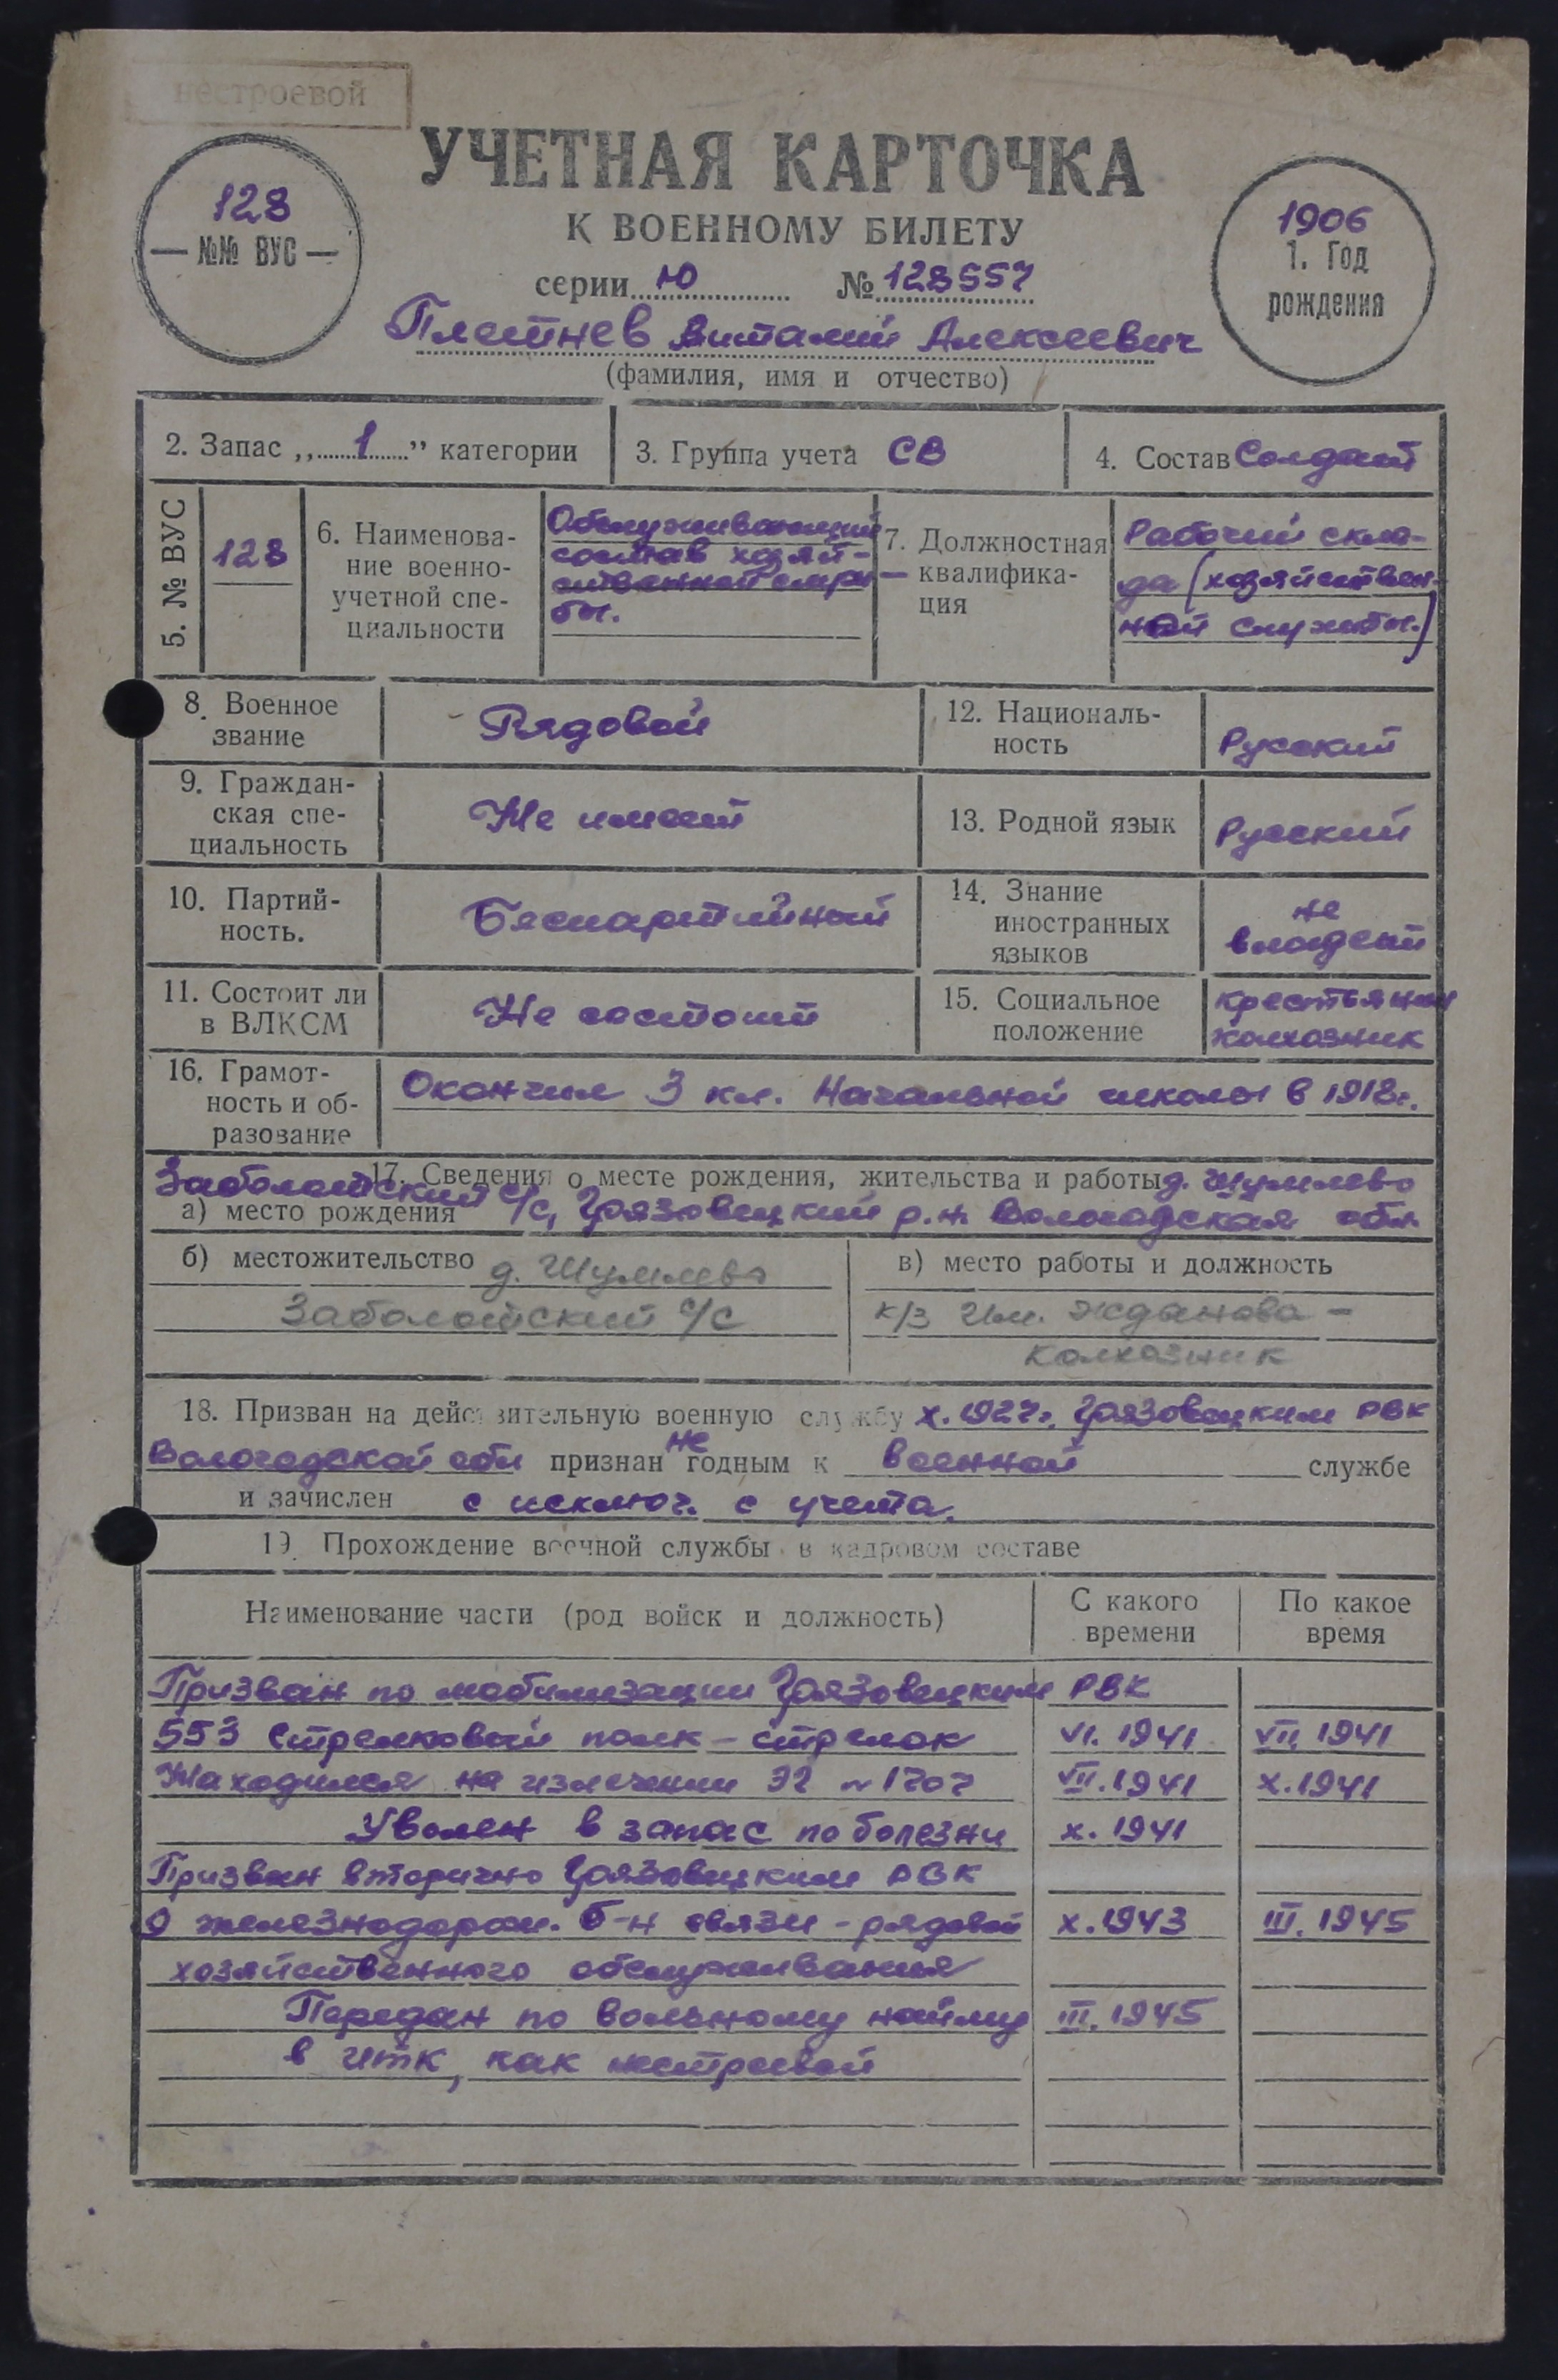 нестроевой
УЧЕТНАЯ КАРТОЧКА
К ВОЕННОМУ БИЛЕТУ
128
— №№ ВУС —
1906
1. Год
рождения
серии Ю № 128557
Плетнев Виталий Алексеевич
(фамилия, имя и отчество)
2. Запас „1” категории
3. Группа учета СВ
4. Состав Солдат
5. № ВУС
128
6. Наименова-
ние военно-
учетной спе-
циальности
Обслуживающий
состав хозяй-
ственной служ-
бы.
7. Должностная
квалифика-
ция
Рабочий скла-
да (хозяйствен-
ной службы.)
8. Военное
звание
Рядовой
12. Националь-
ность
Русский
9. Граждан-
ская спе-
циальность
Не имеет
13. Родной язык
Русский
10. Партий-
ность.
Беспартийный
14. Знание
иностранных
языков
не
владеет
11. Состоит ли
в ВЛКСМ
Не состоит
15. Социальное
положение
крестьянин
колхозник
16. Грамот-
ность и об-
разование
Окончил 3 кл. Начальной школы в 1918г.
17. Сведения о месте рождения, жительства и работы д. Шумлево
а) место рождения Заболотский с/с, Грязовецкий р.н. Вологодская обл
б) местожительство д. Шумлево
Заболотский с/с
в) место работы и должность
к/з Им. Жданова -
Колхозник
18. Призван на действительную военную службу X. 1927г. Грязовецким РВК
Вологодской обл признан не годным к военной службе
и зачислен с исключ. с учета.
19. Прохождение военной службы в кадровом составе
Наименование части (род войск и должность)
С какого
времени
По какое
время
Призван по мобилизации Грязовецким РВК
553 Стрелковый полк - стрелок VI. 1941 VII. 1941
Находился на излечении ЭГ № 1707 VII. 1941 X. 1941
Уволен в запас по болезни X. 1941
Призван вторично Грязовецким РВК
9 железнодорож. б-н связи - рядовой X. 1943 III. 1945
хозяйственного обслуживания
Передан по вольному найму III. 1945
в ИТК, как нестроевой